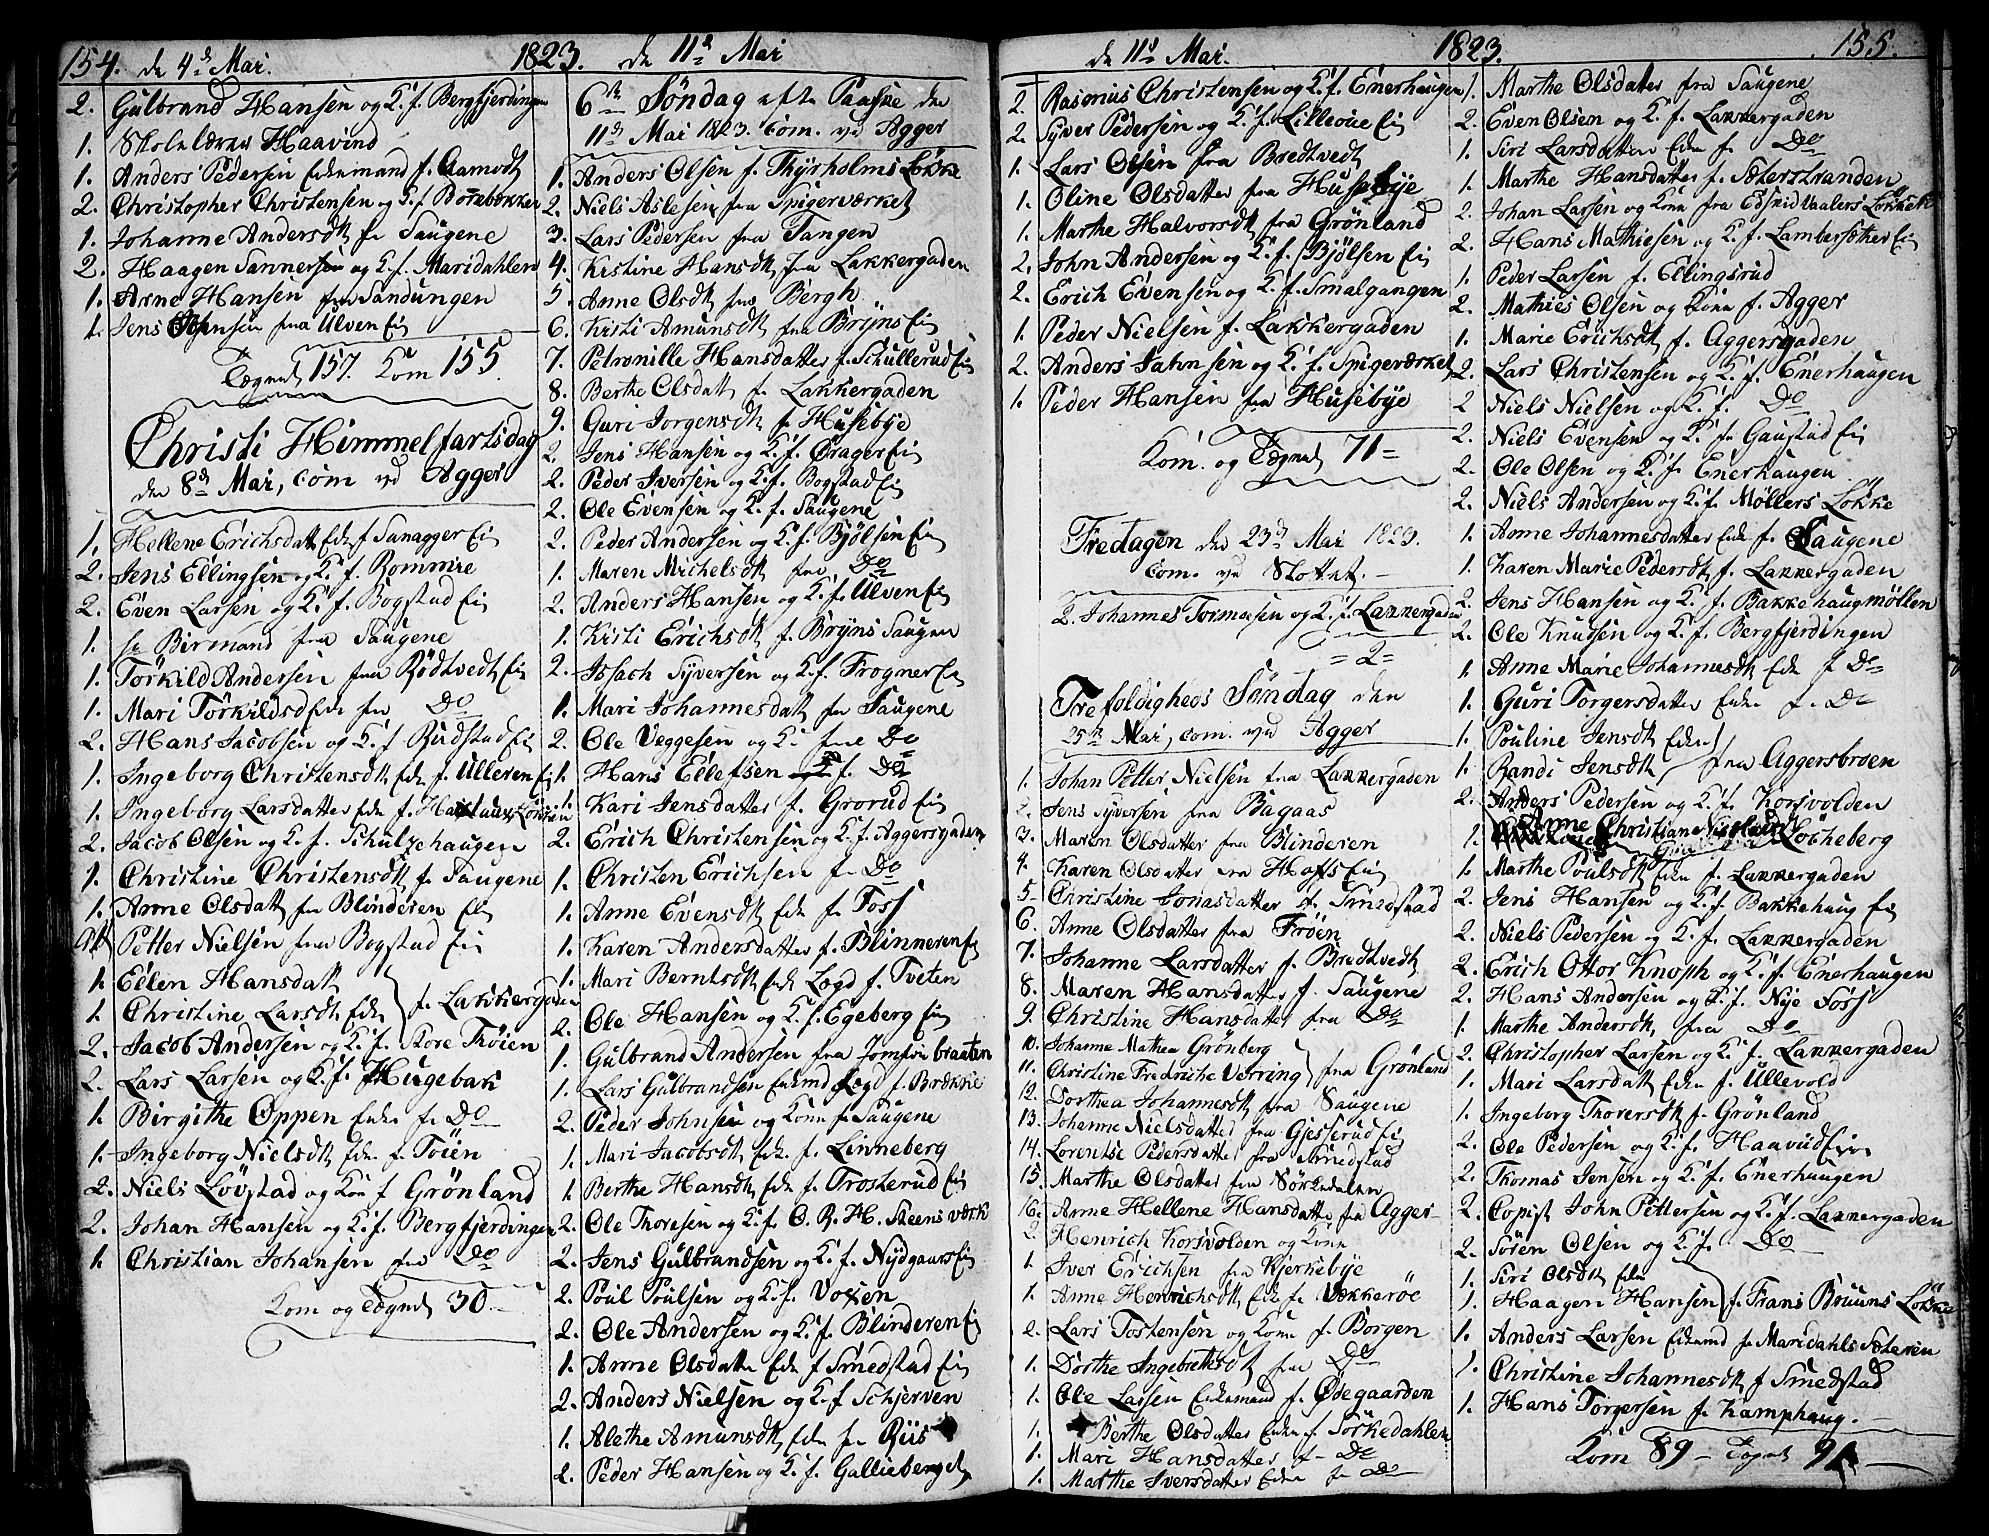 154. de 4de Mai. 1823. de 11de Mai
2. Gulbrand Hansen og K. f. Bergfjerdingen
1. Skolelærer Haavind
1. Anders Pedersen Enkemand f. Aamodt
2. Christopher Christensen og K. f. Börrebækken
1. Johanne Andersdt fr Saugene
2. Haagen Sannersen og K. f. Maridahlen
1. Arne Hansen fra Sandungen
1. Jens Jensen fra Ulven Ei
Tegned 157. Kom 155.
Christi Himmelfartsdag
den 8de Mai, com. vd Agger
1. Hellene Erichsdatt Enke f Sanagger Ei
2. Jens Ellingsen og K. f. Rommire
2. Even Larsen og K. f. Bogstad Ei
1. Sr Birmand fra Saugene
1. Törkild Andersen fra Rödtvedt Ei
1. Mari Törkildsd Enke fra Do
2. Hans Jacobsen og K. f Rudstad Ei
1. Ingeborg Christensdt Enk f. Ulleren Ei
1. Ingeborg Larsdatter Enke f.
2. Jacob Olsen og K. f. Schultzehaugen
1. Christine Christensdt f. Saugene
1. Anne Olsdatt fra Blinderen Ei
Petter Nielsen fra Bogstad Ei
1. Ellen Hansdatt
1. Christine Larsdt Enke f. Lakkergaden
2. Jacob Andersen og K. f. Store Thöien
2. Lars Larsen og K. f. Hugebak
1. Birgithe Oppen Enke fr Do
1. Ingeborg Nielsdt Enk. f. Töien
2. Niels Lövstad og Kon f Grönland
2. Johan Hansen og K. f. Bergfjerdingen
1. Christian Johansen fra Do
Kom og Tegned 30
6te Söndag efter Paaske den
11de Mai 1823. Com. vd Agger
1. Anders Olsen f. Thyrholms Lökke
2. Niels Aslesen fra Spigerværket
3. Lars Pedersen fra Tangen
4. Kirstine Hansdt fra Lakkergaden
5. Anne Olsdt fra Bergh
6. Kirsti Amunsdt fra Bryns Ei
7. Petronille Hansdatter f. Schullerud Ei
8. Berthe Olsdatt f. Lakkergaden
9. Guri Jorgensdt f Husebye
2. Jens Hansen og K. f. Orager Ei
2. Peder Iversen og K. f. Bogstad Ei
2. Ole Evensen og K. f. Saugene
2. Peder Andersen og K. f. Bjölsen Ei
1. Maren Michelsdt fra Do
2. Anders Hansen og K. f. Ulven Ei
1. Kirsti Erichsdt f. Bryns Saugen
2. Issach Syversen og K. f. Frogner Ei
1. Mari Johannesdatt fra Saugene
2. Ole Veggesen og K. fra Do
1. Hans Ellefsen f. Do
1. Kari Jensdatter f. Grorud Ei
2. Erich Christensen og K. f. Aggersgaden
1. Christen Erichsen fr Do
1. Anne Evensdt Enk fr Foss
1. Karen Andersdatter f. Blinneren Ei
1. Mari Berntsdt Enke Logd f. Tveten
2. Ole Hansen og K. f. Egeberg Ei
1. Gulbrand Andersen fra Jomfrubraaten
1. Lars Gulbrandsen Enkemd Logd f. Brække
2. Peder Johnsen og Kone f. Saugene
1. Mari Jacobsdt Enk. f. Linneberg
1. Berthe Hansdt Enke f. Trosterud Ei
2. Ole Thoresen og K. f. O. R. H. Steensværk
2. Jens Gulbrandsen og K. f. Nydgaards Ei
2. Poul Poulsen og K. f. Voxen
2. Ole Andersen og K. f. Blinderen Ei
1. Anne Olsdatte Enke f Smedstad Ei
2. Anders Nielsen og K. f Schjerven
1. Alethe Amunsdt Enke fra Riis
2. Peder Hansen og K. f. Gallieberget
de 11te Mai. 1823. 155.
2. Rasmus Christensen og K. f. Enerhaugen
2. Syver Pedersen og K. f. Lilleoie Ei
1. Lars Olsen fra Bredtvedt
1. Oline Olsdatter fra Husebye
1. Marthe Halvorsdt fra Grönland
2. John Andersen og K. f. Bjölsen Ei
2. Erich Evensen og K. f. Smalgangen
1. Peder Nielsen f. Lakkergaden
2. Anders Jahnsen og K. f. Spigerværket
1. Peder Hansen fra Husebye
Kom. og Tegned 71=
Fredagen den 23de Mai 1823.
com. vd Slottet.
2. Johannes Tormosen og K. f. Lakkergaden
=2=
Trefoldigheds Söndag den
25de Mai, com. vd Agger
1. Johan Petter Nielsen fra Lakkergaden
2. Jens Syversen fra Bagaas
3. Maren Olsdatter fra Blinderen
4. Karen Olsdatter fra Hoffs Ei
5. Christine Jonasdatter f. Smedstad
6. Anne Olsdatter fra Fröen
7. Johanne Larsdatter f. Bredtvedt
8. Maren Hansdatter f. Saugene
9. Christine Hansdatter fra Do
10. Johanne Mathea Grönberg
11. Christine Fredriche Verring fra Grönland
12. Dorthea Johannesdt fra Saugene
13. Johanne Nielsdatter fra Gjesserud Ei
14. Lorentse Pedersdatter fra Smedstad
15. Marthe Olsdatter fra Sörkedalen
16. Anne Hellene Hansdatter fra Agger
2. Henrich Korsvolden og Kone
1. Iver Erichsen fra Kjerkebye
1. Anne Henrichsdt Enk fr Vækkeröe
2. Lars Tostensen og Kone f. Borgen
1. Dorthe Ingebretsdt fra Do
1. Ole Larsen Enkemand f. Ödegaarden
1. Berthe Olsdatter Enke f Sörkedahlen
1. Mari Hansdatter f. Do
1. Marthe Iversdatter Enke fr Do
1. Marthe Olsdatter fra Saugene
2. Even Olsen og K. f. Lakkergaden
1. Siri Larsdatter Enke f. Do
1. Marthe Hansdatter f. Sæterstranden
2. Johan Larsen og Kone fra Edskid Vaalers Lökke
2. Hans Mathiesen og K. f. Lambersöter Ei
1. Peder Larsen f. Ellingsrud
2. Mathies Olsen og Kone f. Agger
1. Marie Erichsdt f. Aggersgaden
2. Lars Christensen og K. f. Enerhaugen
2 Niels Nielsen og K. f. Do
2. Niels Evensen og K. fr Gaustad Ei
2. Ole Olsen og K. f. Enerhaugen
2. Niels Andersen og K. f Möllers Lökke
1. Anne Johannesdatter Enke f. Saugene
1. Karen Marie Pedersdt f. Lakkergaden
2. Jens Hansen og K. f. Bakkehaugmöllen
2. Ole Knudsen og K. f. Bergfjerdingen
1. Anne Marie Johannesdt Enke f Do
1. Guri Torgersdatter Enke f. Do
1. Pouline Jensdt Enke
1. Randi Jensdt fra Aggersbroen
2. Anders Pedersen og K. f. Korsvolden
1. Anne Christiane Nicolai Lökkeberg
1. Marthe Poulsdt Enke f. Lakkergaden
2. Jens Hansen og K. f. Bakkehaug Ei
2. Niels Pedersen og K. f. Lakkergaden
2. Erich Ottor Knoph og K. f. Enerhaugen
2. Hans Andersen og K. f. Nye Foss
1. Marthe Andersdt, fra Do
2. Christopher Larsen og K. f. Lakkergaden
1. Mari Larsdatt Enke f. Ullevold
1. Ingeborg Thoversdt f. Grönland
2. Ole Pedersen og K. f. Haavud Ei
2. Thomas Jensen og K. f. Enerhaugen
2. Copist John Pettersen og K. f. Lakkergaden
2. Sören Olsen og K. f. Do
1. Siri Olsdt Enke
1. Haagen Hansen f. Frans Bruuns Lökke
1. Anders Larsen Enkemd fr Maridahls Sæteren
1. Christine Johannesdt f Smedstad
1. Hans Torgersen f. Kamphaug.
Kom 89 - Tegned 91